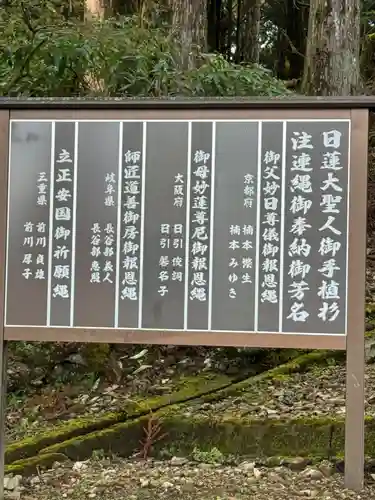 日蓮大聖人御手植杉
注連縄御奉納御芳名
御父妙日尊儀御報恩
京都府
楠本 悦生
楠本 みゆき
御母妙蓮尊尼御報恩
大阪府
日引 俊詞
日引 馨名子
師匠道善御房御報恩
岐阜県
長谷部 義人
長谷部 恵殿
立正安国御祈願縄
三重県
前川 貞雄
前川 厚子